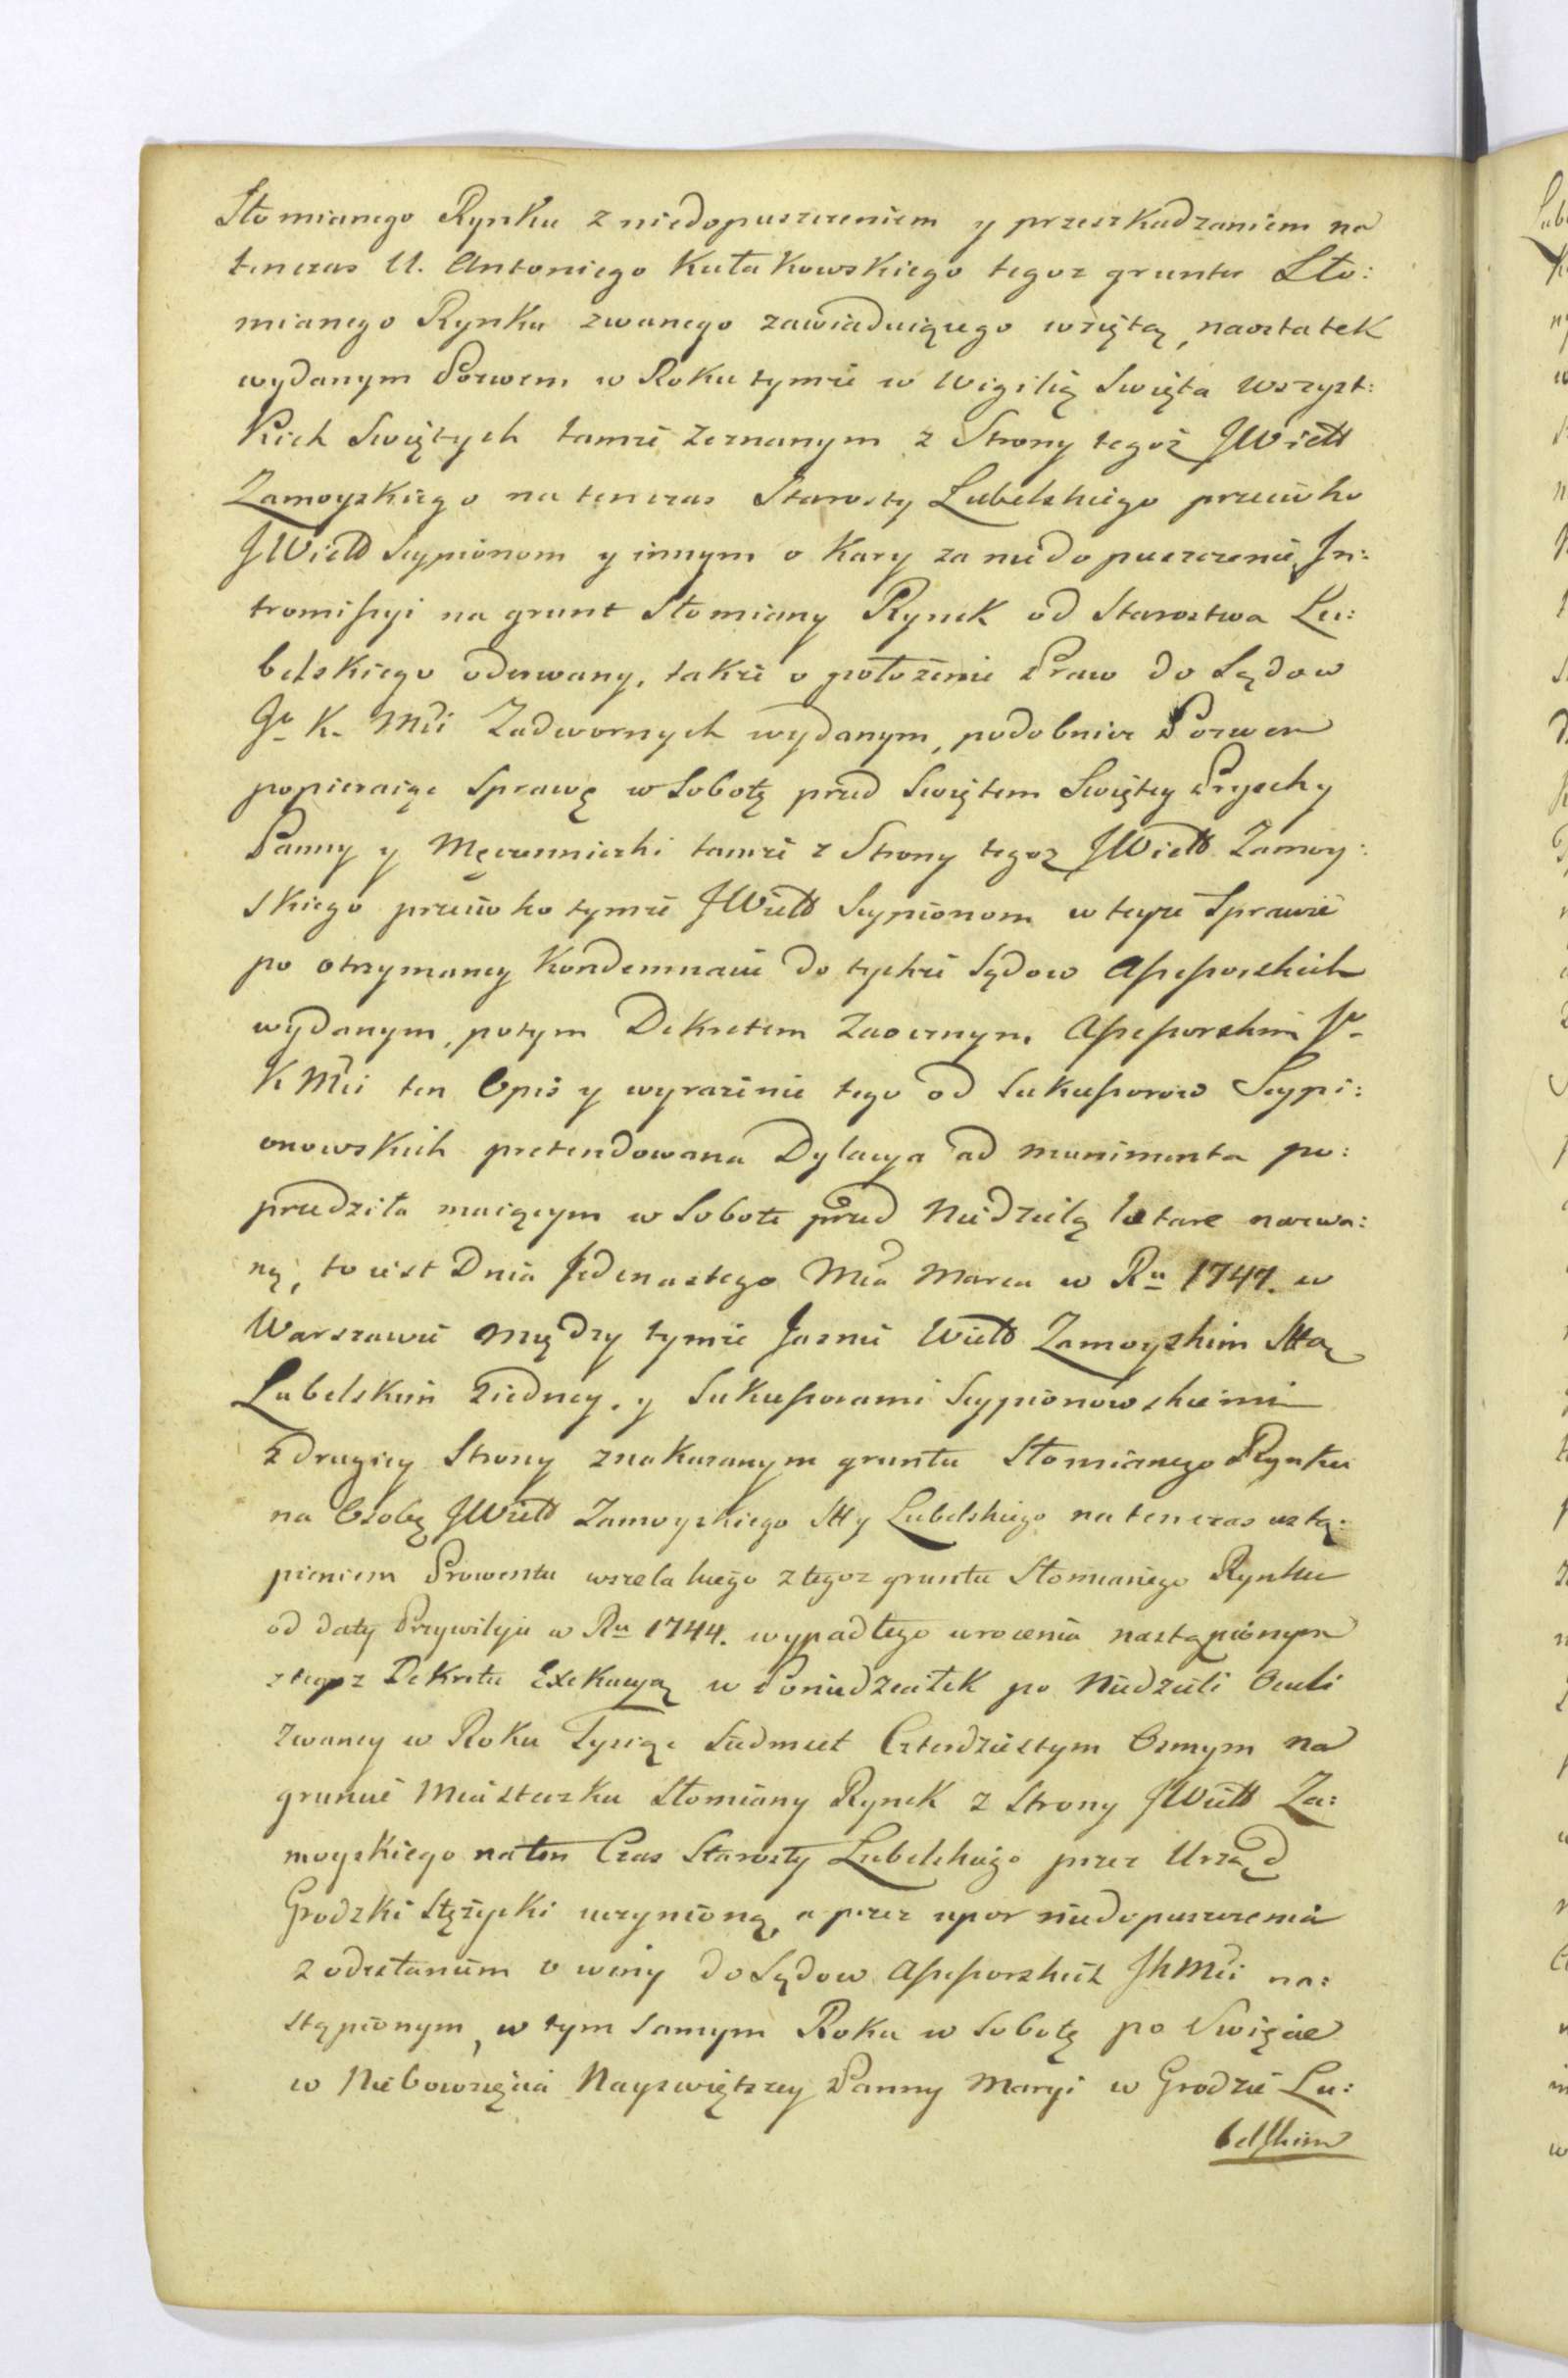 Słomianego Rynku z niedopuszczeniem y przeszkadzaniem na
tenczas U. Antoniego Kułakowskiego tegoz gruntu Sło:
mianego Rynku zwanego zawiaduiącego wziętą, naostatek
wydanym Pozwem w Roku tymże w Wigilią Swięta Wszyst:
kich Swiętych tamże zeznanym z Strony tegoż JWielb
Zamoyskiego na tenczas Starosty Lubelskiego przeciwko
JWielb Scypionom y innym o Kary za niedopuszczenie In:
tromissyi na grunt Słomiany Rynek od Starostwa Lu:
belskiego oderwany, także o położenie Praw do Sądow
Jo K. Mci Zadwornych wydanym, podobnież Pozwem
popieraiąc Sprawę w Sobotę przed Swiętem Swiętey Pryschy
Panny y Męczenniczki tamże z Strony tegoz JWielb Zamoy:
skiego przeciwko tymże JWielb Scypionom w teyże Sprawie
po otrzymaney Kondemnacie do tychże Sądow Assessorskich
wydanym, potym Dekretem Zaocznym Assessorskim Jo
K Mci ten Opis y wyrażenie tego od Sukcessorow Scypi:
onowskich pretendowana Dylacya ad munimenta po:
przedziła maiącym w Sobotę przed Niedzielą laetare nazwa:
ną, to iest Dnia Jedenastego Mca Marca w Ru 1747. w
Warszawie między tymże Jasnie Wielb Zamoyskim Sttą
Lubelskim ziedney, y Sukcessorami Scypionowskiemi
z drugiey Strony znakazanym gruntu Słomianego Rynku
na Osobę JWielb Zamoyskiego Stty Lubelskiego na tenczas ustą:
pieniem Prowentu wszelakiego z tegoz gruntu Słomianego Rynku
od daty Przywileju w Ru 1744. wypadłego wrocenia nastąpionym
z tegoz Dekretu Exekucyą w Poniedziałek po Niedzieli Oculi
zwaney w Roku Tysiąc Siedmset Czterdziestym Osmym na
gruncie Miasteczku Słomiany Rynek z Strony JWielb Za:
moyskiego na ten Czas Starosty Lubelskiego przez Urząd
Grodzki Stężycki uczynioną, a przez upor niedopuszczenia
z odesłaniem o winy do Sądow Assessorskich JKMci na:
stąpionym, w tym samym Roku w Sobotę po Swięcie
w Niebowzięcia Nayswiętszey Panny Maryi w Grodzie Lu:
belskim